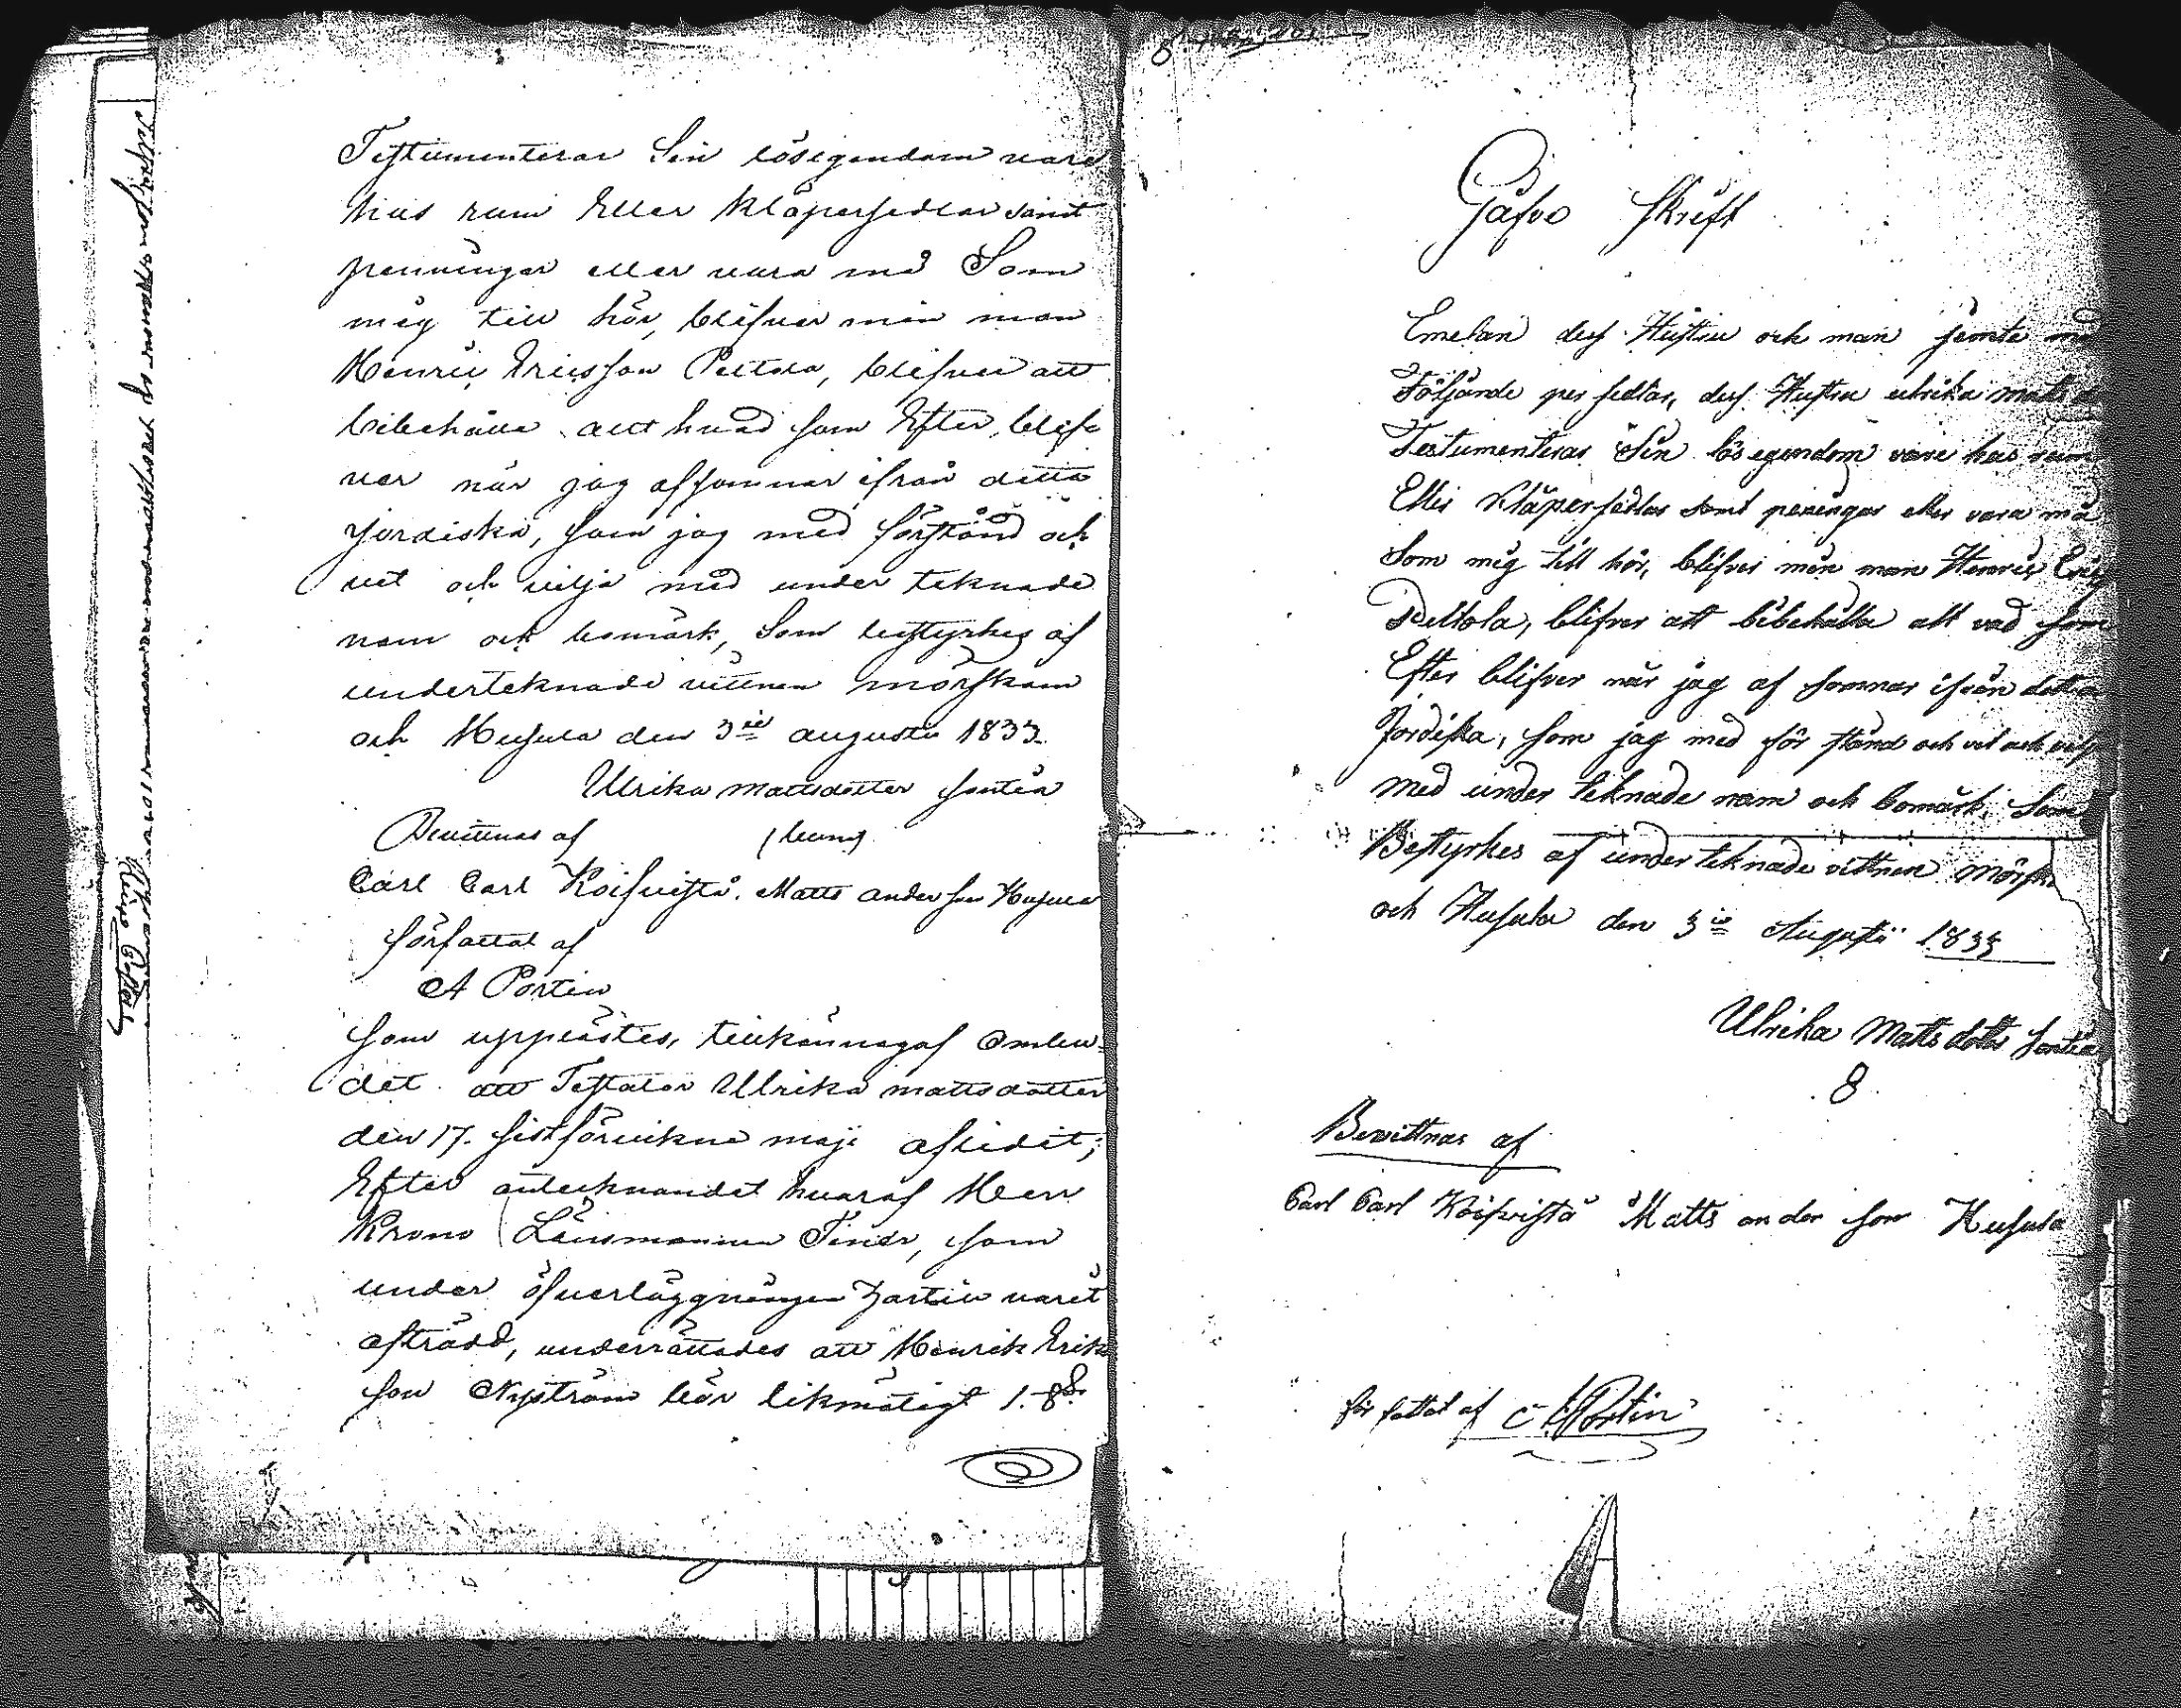 Testumenterar Sin lösegendom vare
hus rum Eller Kläpersedlar samt
penningar eller vara må Som
mig till hör, blifver min man
Henric Ericsson Peltola, blifver att
bibehålla allt hvad som Efter, blif
ver når jag afsomnar ifrån detta
jordiska, som jag med förstånd och
vet och vilja med under teknade
nam och bomärk, Som bestyrkes af
underteknade vittnen mörskam
och Husula den 3ie augusti 1833.
Ulrika mattsdotter Sontin
Bevittnas af (bum)
Carl Carl Koifvistå. Matts andersson Husula
författat af
A Portin
Som upplästes, tillkännagaf Ombu-
det att Testator Ulrika mattsdotter
den 17. sistförvikne maji aflidit;
Efter antecknandet hvaraf Herr
Krono Länsmannen Tinds, som
under öfverläggningen härtill varit
afträdd, underrättades att Henrik Erik
son Nyström bör likmätigt 1. §
Gåfvo Skrift
Emelan dess Hustru och man jemte med
Följande persedlar, dess Hustru ulrika matts
Testumenterar Sin lösegendom vare hus rum
Eller Kläpersedlar samt peningar eller vara må
Som mig till hör, blifver min man Henric Erics
Peltola, blifver att bibehålla alt vad som
Efter blifver når jag af somnar ifrån detta
Jordiska, som jag med för stånd och vet och vilja
med under teknade nam och bomärk, Som
Bestyrkes af under teknade vittnen mörsk
och Husula den 3ie Augusti 1833
Ulrika Matts dotter Sontin
8
Bevittnas af
Carl Carl Koifvistå Matts ander son Husula
för fattat af A Portin